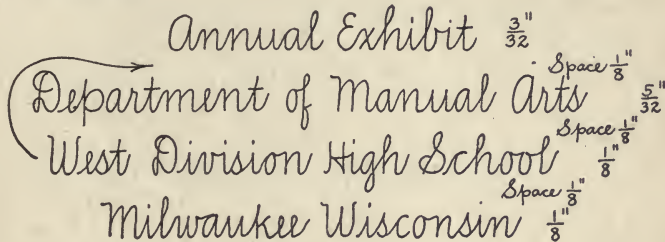 Annual Exhibit 3/32"
Space 1/8"
Department of Manual Arts 5/32"
Space 1/8"
West Division High School 1/8"
Space 1/8"
Milwaukee Wisconsin 1/8"